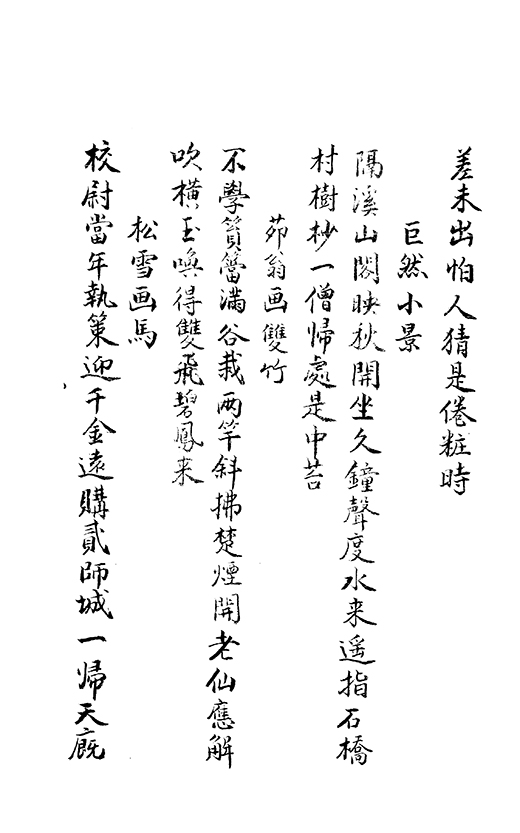 差未出怕人猜是倦粧時
巨然小景
隔溪山閣映秋開坐久鐘聲度水来遥指石橋
村樹杪一僧㷌處是中苔
茆翁画雙竹
不學篔簹满谷栽两竿斜拂楚煙開老仙應解
吹橫玉喚得雙飛碧鳳来
松雪画馬
校尉當年執策迎千金遠購貳師城一歸天廐